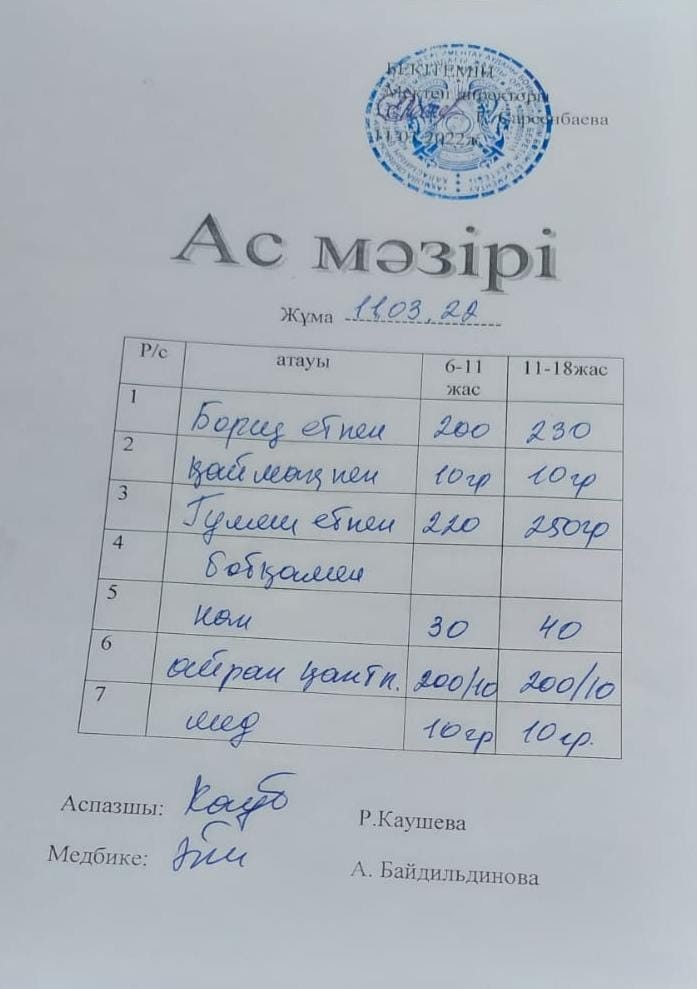 БЕКІТЕМІН
Мектеп директоры
Сарсенбаева
11.03.2022ж
Ас мәзірі
Жұма 11.03.22
Р/с атауы 6-11 жас 11-18жас
1 Борщ етпен 200 230
2 қаймақпен 10гр 10гр
3 Гуляш етпен 220 250гр
4 ботқамен
5 нан 30 40
6 айран қантп. 200/10 200/10
7 мед 10гр 10гр.
Аспазшы: Р.Каушева
Медбике: А. Байдильдинова